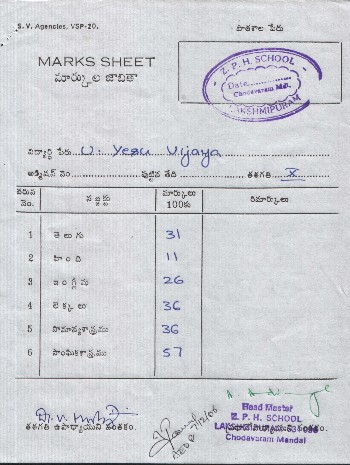 S. V. Agencies, VSP-20.
పాఠశాల పేరు
MARKS SHEET
మార్కుల జాబితా
Z. P. H. SCHOOL
Date
Chodavaram Md.
LAKSHMIPURAM
విద్యార్థి పేరు U. Yesu Vijaya
అడ్మిషన్ నెం. పుట్టిన తేది తరగతి X
వరుస నెం. సబ్జక్టు మార్కులు 100కు రిమార్కులు
1 తెలుగు 31
2 హింది 11
3 ఇంగ్లీసు 26
4 లెక్కలు 36
5 సామాన్యశాస్త్రము 36
6 సాంఘికశాస్త్రము 57
Head Master
Z. P. H. SCHOOL
తరగతి ఉపాధ్యాయుని సంతకం. LAKSHMIPURAM
Chodavaram Mandal